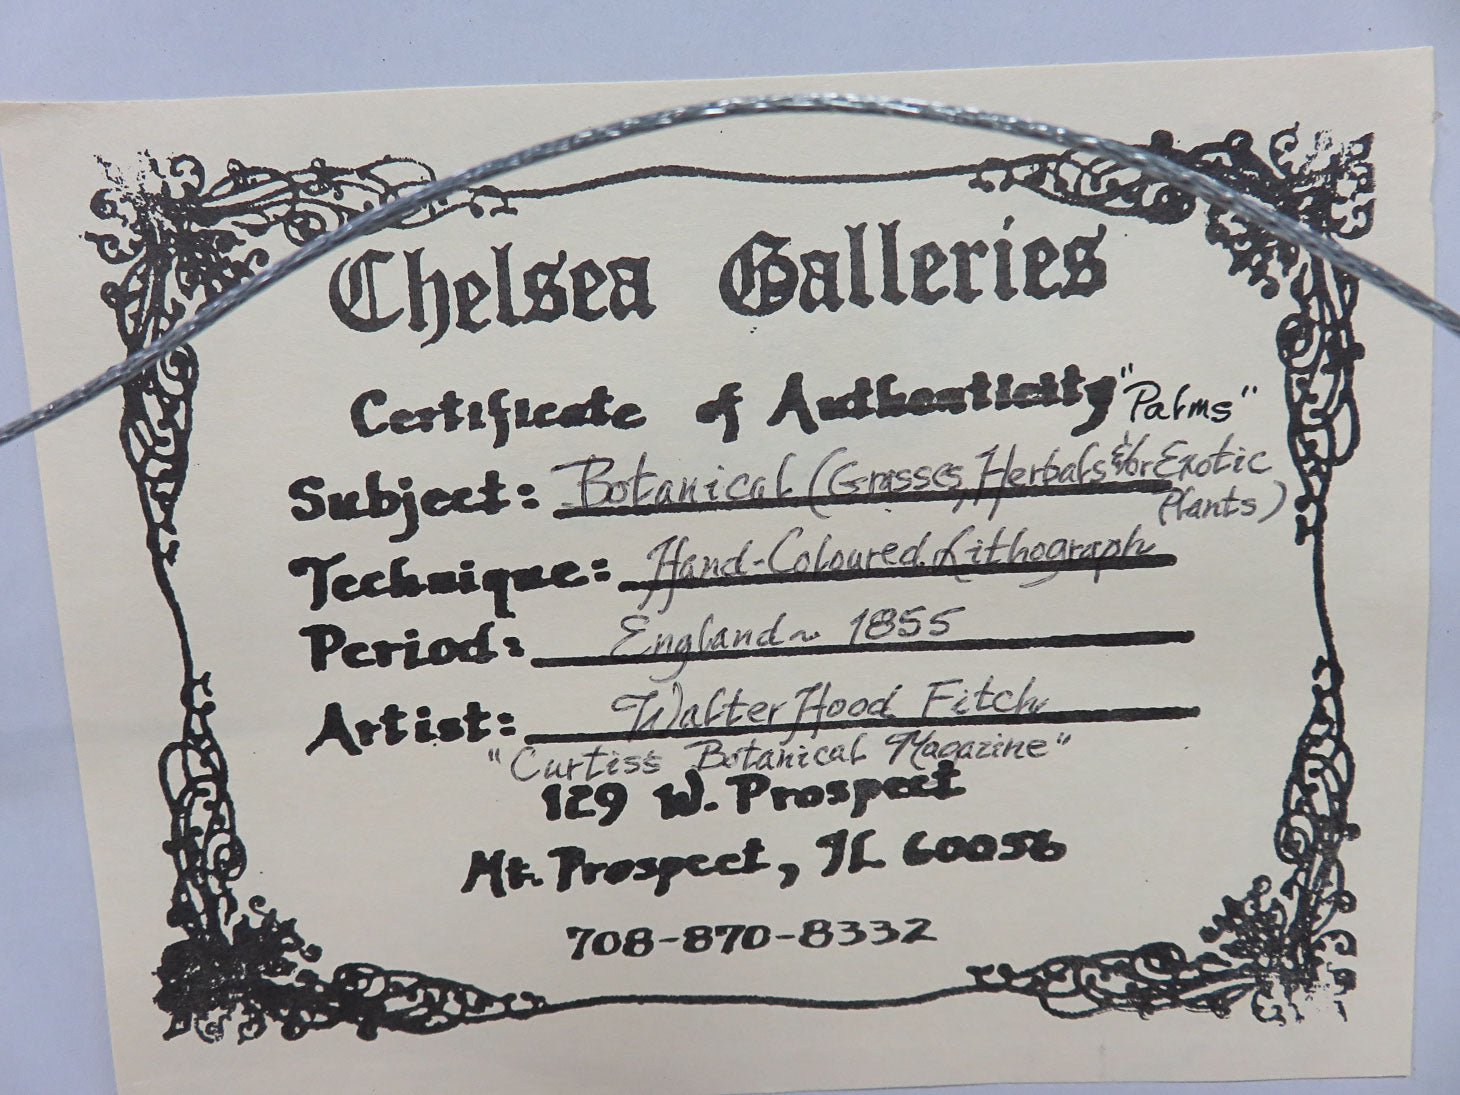 Chelsea Galleries
Certificate of Authenticity "Palms"
Subject: Botanical (Grasses, Herbals &/or Exotic
Plants)
Technique: Hand-Coloured Lithograph
Period: England ~ 1855
Artist: Walter Hood Fitch
"Curtiss Botanical Magazine"
129 W. Prospect
Mt. Prospect, IL 60056
708-870-8332